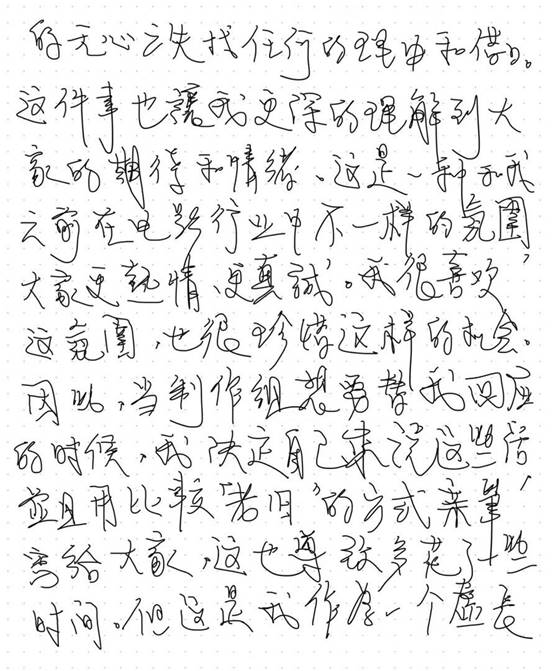 的无心之失找任何的理由和借口。
这件事也讓我更深的理解到大
家的期待和情绪、这是一种和我
之前在电影行业中不一样的氛圍
大家更热情、更真誠。我很喜欢
这氛圍，也很珍惜这样的机会。
因此，当制作组想要替我回应
的时候，我决定自己来说这些话，
並且用比较“老旧”的方式亲筆
寫给大家，这也導致多花了一些
时间。但这是我作為一个虛長